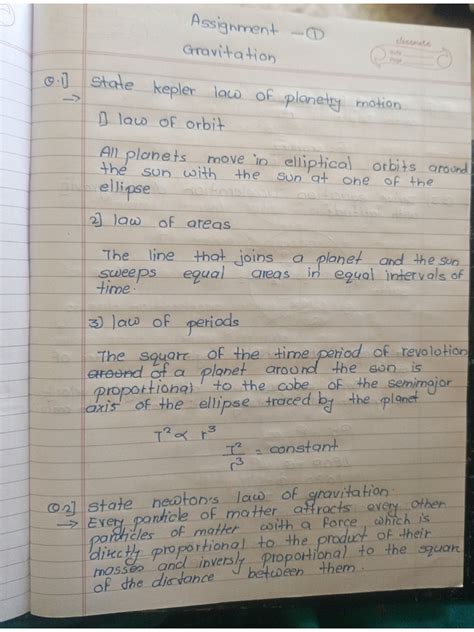 Assignment - ①
Gravitation
classmate
Date
Page
Q.1] state kepler law of planetry motion
→
1] law of orbit
All planets move in elliptical orbits around
the sun with the sun at one of the
ellipse
2] law of areas
The line that joins a planet and the sun
sweeps equal areas in equal intervals of
time.
3) law of periods
The square of the time period of revolotion
around of a planet around the sun is
proportional to the cube of the semimajor
axis of the ellipse traced by the planet
T² ∝ r³
T²/r³ = constant
Q.2] state newton's law of gravitation.
→ Every particle of matter attracts every other
particles of matter with a force which is
directly proportional to the product of their
masses and inversly proportional to the square
of the distance between them.